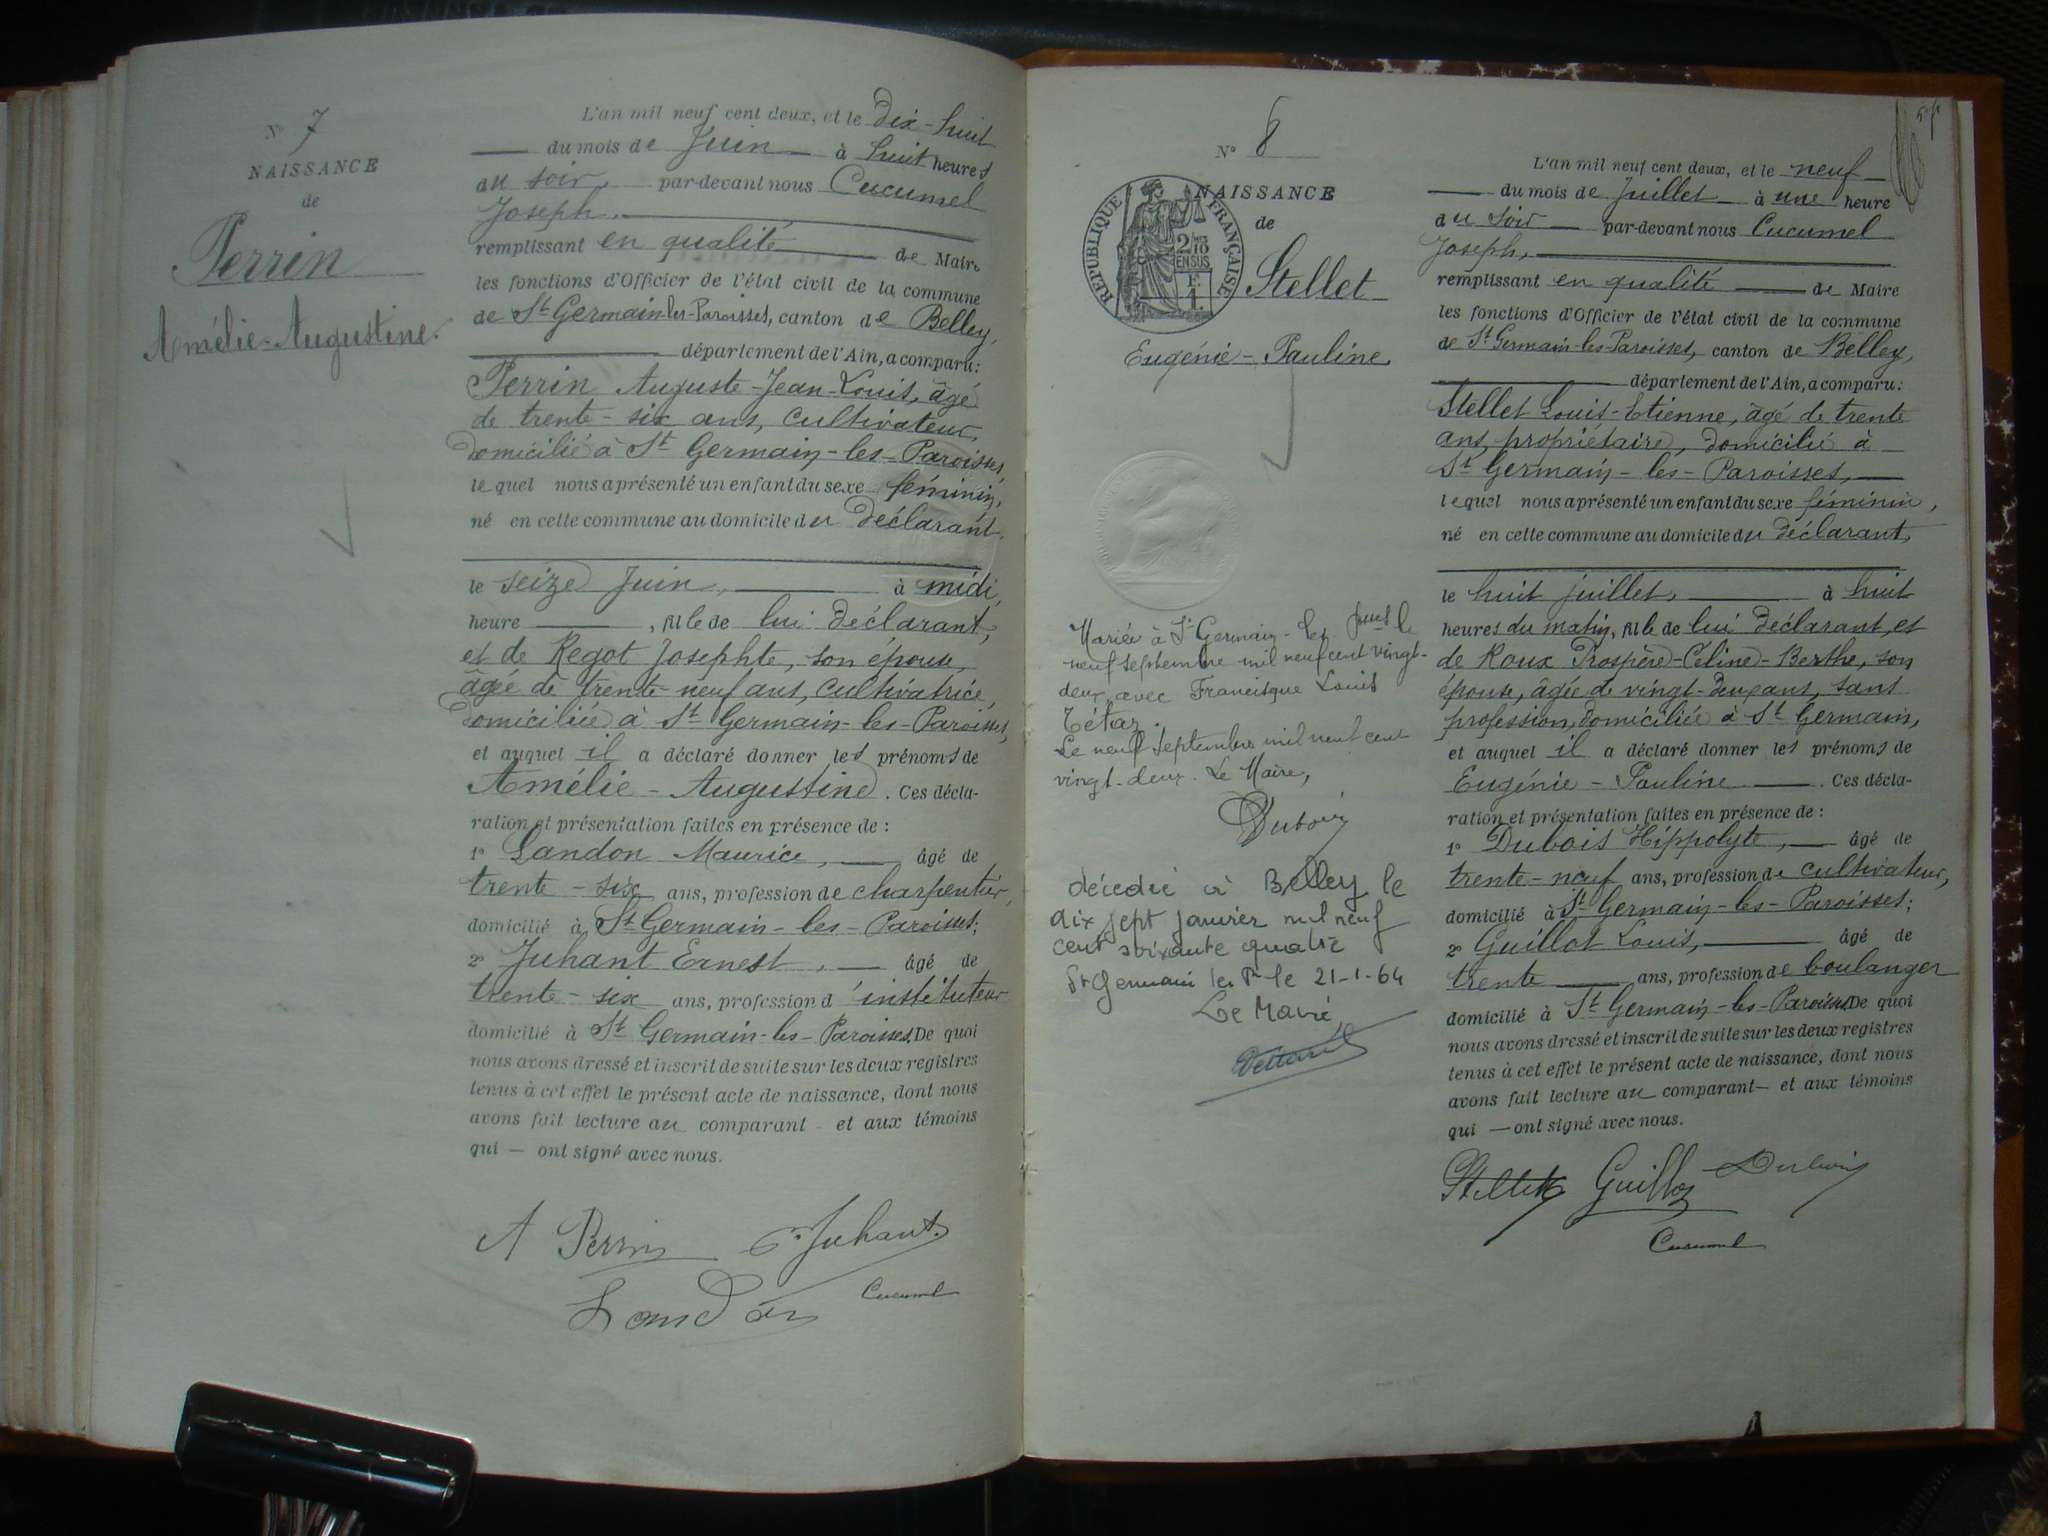 N° 7
NAISSANCE
de
Perrin
Amélie-Augustine.
L'an mil neuf cent deux, et le dix-huit
du mois de Juin à huit heures
du soir, par-devant nous Cucumel
Joseph,
remplissant en qualité de Maire
les fonctions d'Officier de l'état civil de la commune
de St Germain-les-Paroisses, canton de Belley,
département de l'Ain, a comparu:
Perrin Auguste-Jean-Louis, âgé
de trente-six ans, cultivateur,
domicilié à St Germain-les-Paroisses,
lequel nous a présenté un enfant du sexe féminin,
né en cette commune au domicile du déclarant,
le seize Juin, à midi,
heure , fille de lui déclarant,
et de Regot Josephte, son épouse,
âgée de trente-neuf ans, cultivatrice,
domiciliée à St Germain-les-Paroisses,
et auquel il a déclaré donner les prénoms de
Amélie-Augustine. Ces décla-
ration et présentation faites en présence de :
1° Landon Maurice, âgé de
trente-six ans, profession de charpentier,
domicilié à St Germain-les-Paroisses;
2° Juhant Ernest, âgé de
trente-six ans, profession d'instituteur
domicilié à St Germain-les-Paroisses. De quoi
nous avons dressé et inscrit de suite sur les deux registres
tenus à cet effet le présent acte de naissance, dont nous
avons fait lecture au comparant et aux témoins
qui — ont signé avec nous.
A Perrin E. Juhant.
Landon Cucumel
N° 8
NAISSANCE
de
RÉPUBLIQUE FRANÇAISE
2/10
EN SUS
F.
1.
Stellet
Eugénie-Pauline
Mariée à St Germain-les- le
neuf septembre mil neuf cent vingt-
deux, avec Francisque Louis
Tétaz.
Le neuf septembre mil neuf cent
vingt-deux. Le Maire,
Dubois
décédée à Belley le
dix sept janvier mil neuf
cent soixante quatre
St Germain les P. le 21-1-64
Le Maire
L'an mil neuf cent deux, et le neuf
du mois de Juillet à une heure
du soir par-devant nous Cucumel
Joseph,
remplissant en qualité de Maire
les fonctions d'Officier de l'état civil de la commune
de St Germain-les-Paroisses, canton de Belley,
département de l'Ain, a comparu:
Stellet Louis-Etienne, âgé de trente
ans, propriétaire, domicilié à
St Germain-les-Paroisses,
lequel nous a présenté un enfant du sexe féminin,
né en cette commune au domicile du déclarant,
le huit juillet, à huit
heures du matin, fille de lui déclarant, et
de Roux Prospère-Céline-Berthe, son
épouse, âgée de vingt-deux ans, sans
profession, domiciliée à St Germain,
et auquel il a déclaré donner les prénoms de
Eugénie-Pauline. Ces décla-
ration et présentation faites en présence de :
1° Dubois Hippolyte, âgé de
trente-neuf ans, profession de cultivateur,
domicilié à St Germain-les-Paroisses;
2° Guillot Louis, âgé de
trente ans, profession de boulanger
domicilié à St Germain-les-Paroisses. De quoi
nous avons dressé et inscrit de suite sur les deux registres
tenus à cet effet le présent acte de naissance, dont nous
avons fait lecture au comparant — et aux témoins
qui — ont signé avec nous.
Stellet Guillot Dubois
Cucumel